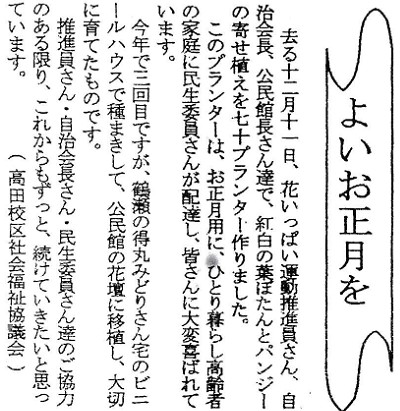 よいお正月を
去る十二月十一日、花いっぱい運動推進員さん、自
治会長、公民館長さん達で、紅白の葉ぼたんとパンジー
の寄せ植えを七十プランター作りました。
このプランターは、お正月用に、ひとり暮らし高齢者
の家庭に民生委員さんが配達し、皆さんに大変喜ばれて
います。
今年で三回目ですが、鶴瀬の得丸みどりさん宅のビニ
ールハウスで種まきして、公民館の花壇に移植し、大切
に育てたものです。
推進員さん・自治会長さん・民生委員さん達のご協力
のある限り、これからもずっと、続けていきたいと思っ
ています。
（高田校区社会福祉協議会）